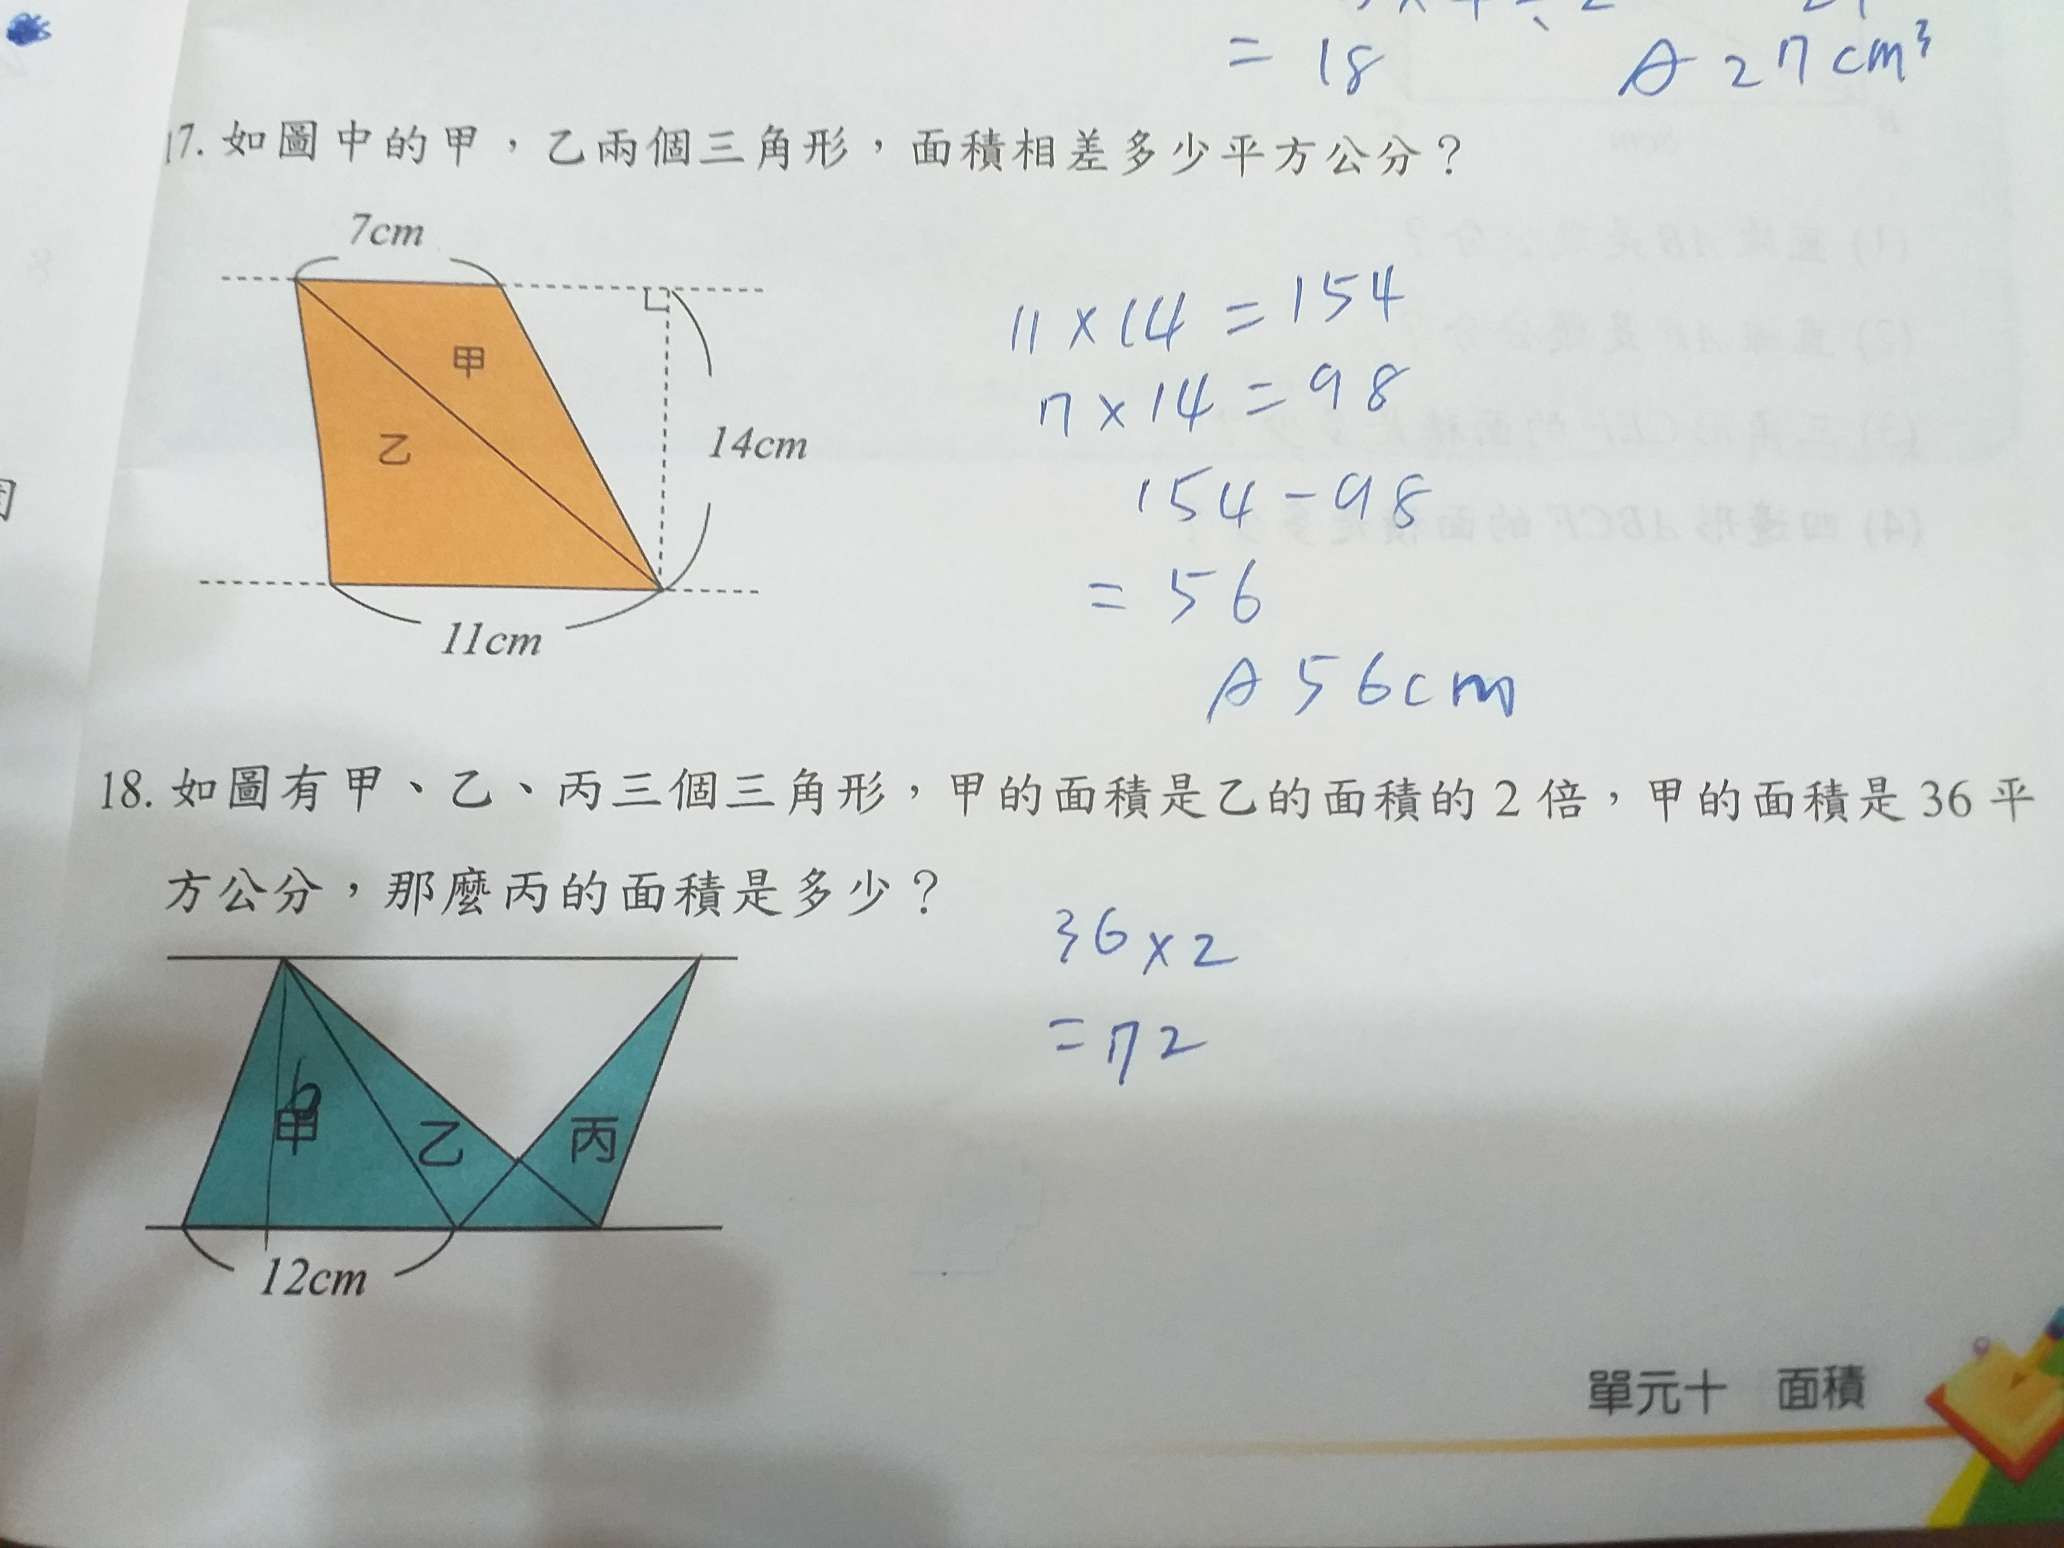 = 18
A 27cm³
17. 如圖中的甲，乙兩個三角形，面積相差多少平方公分？
7cm
甲
乙
14cm
11cm
11 × 14 = 154
7 × 14 = 98
154 - 98
= 56
A 56cm
18. 如圖有甲、乙、丙三個三角形，甲的面積是乙的面積的 2 倍，甲的面積是 36 平
方公分，那麼丙的面積是多少？
36 × 2
= 72
6
甲
乙
丙
12cm
單元十 面積